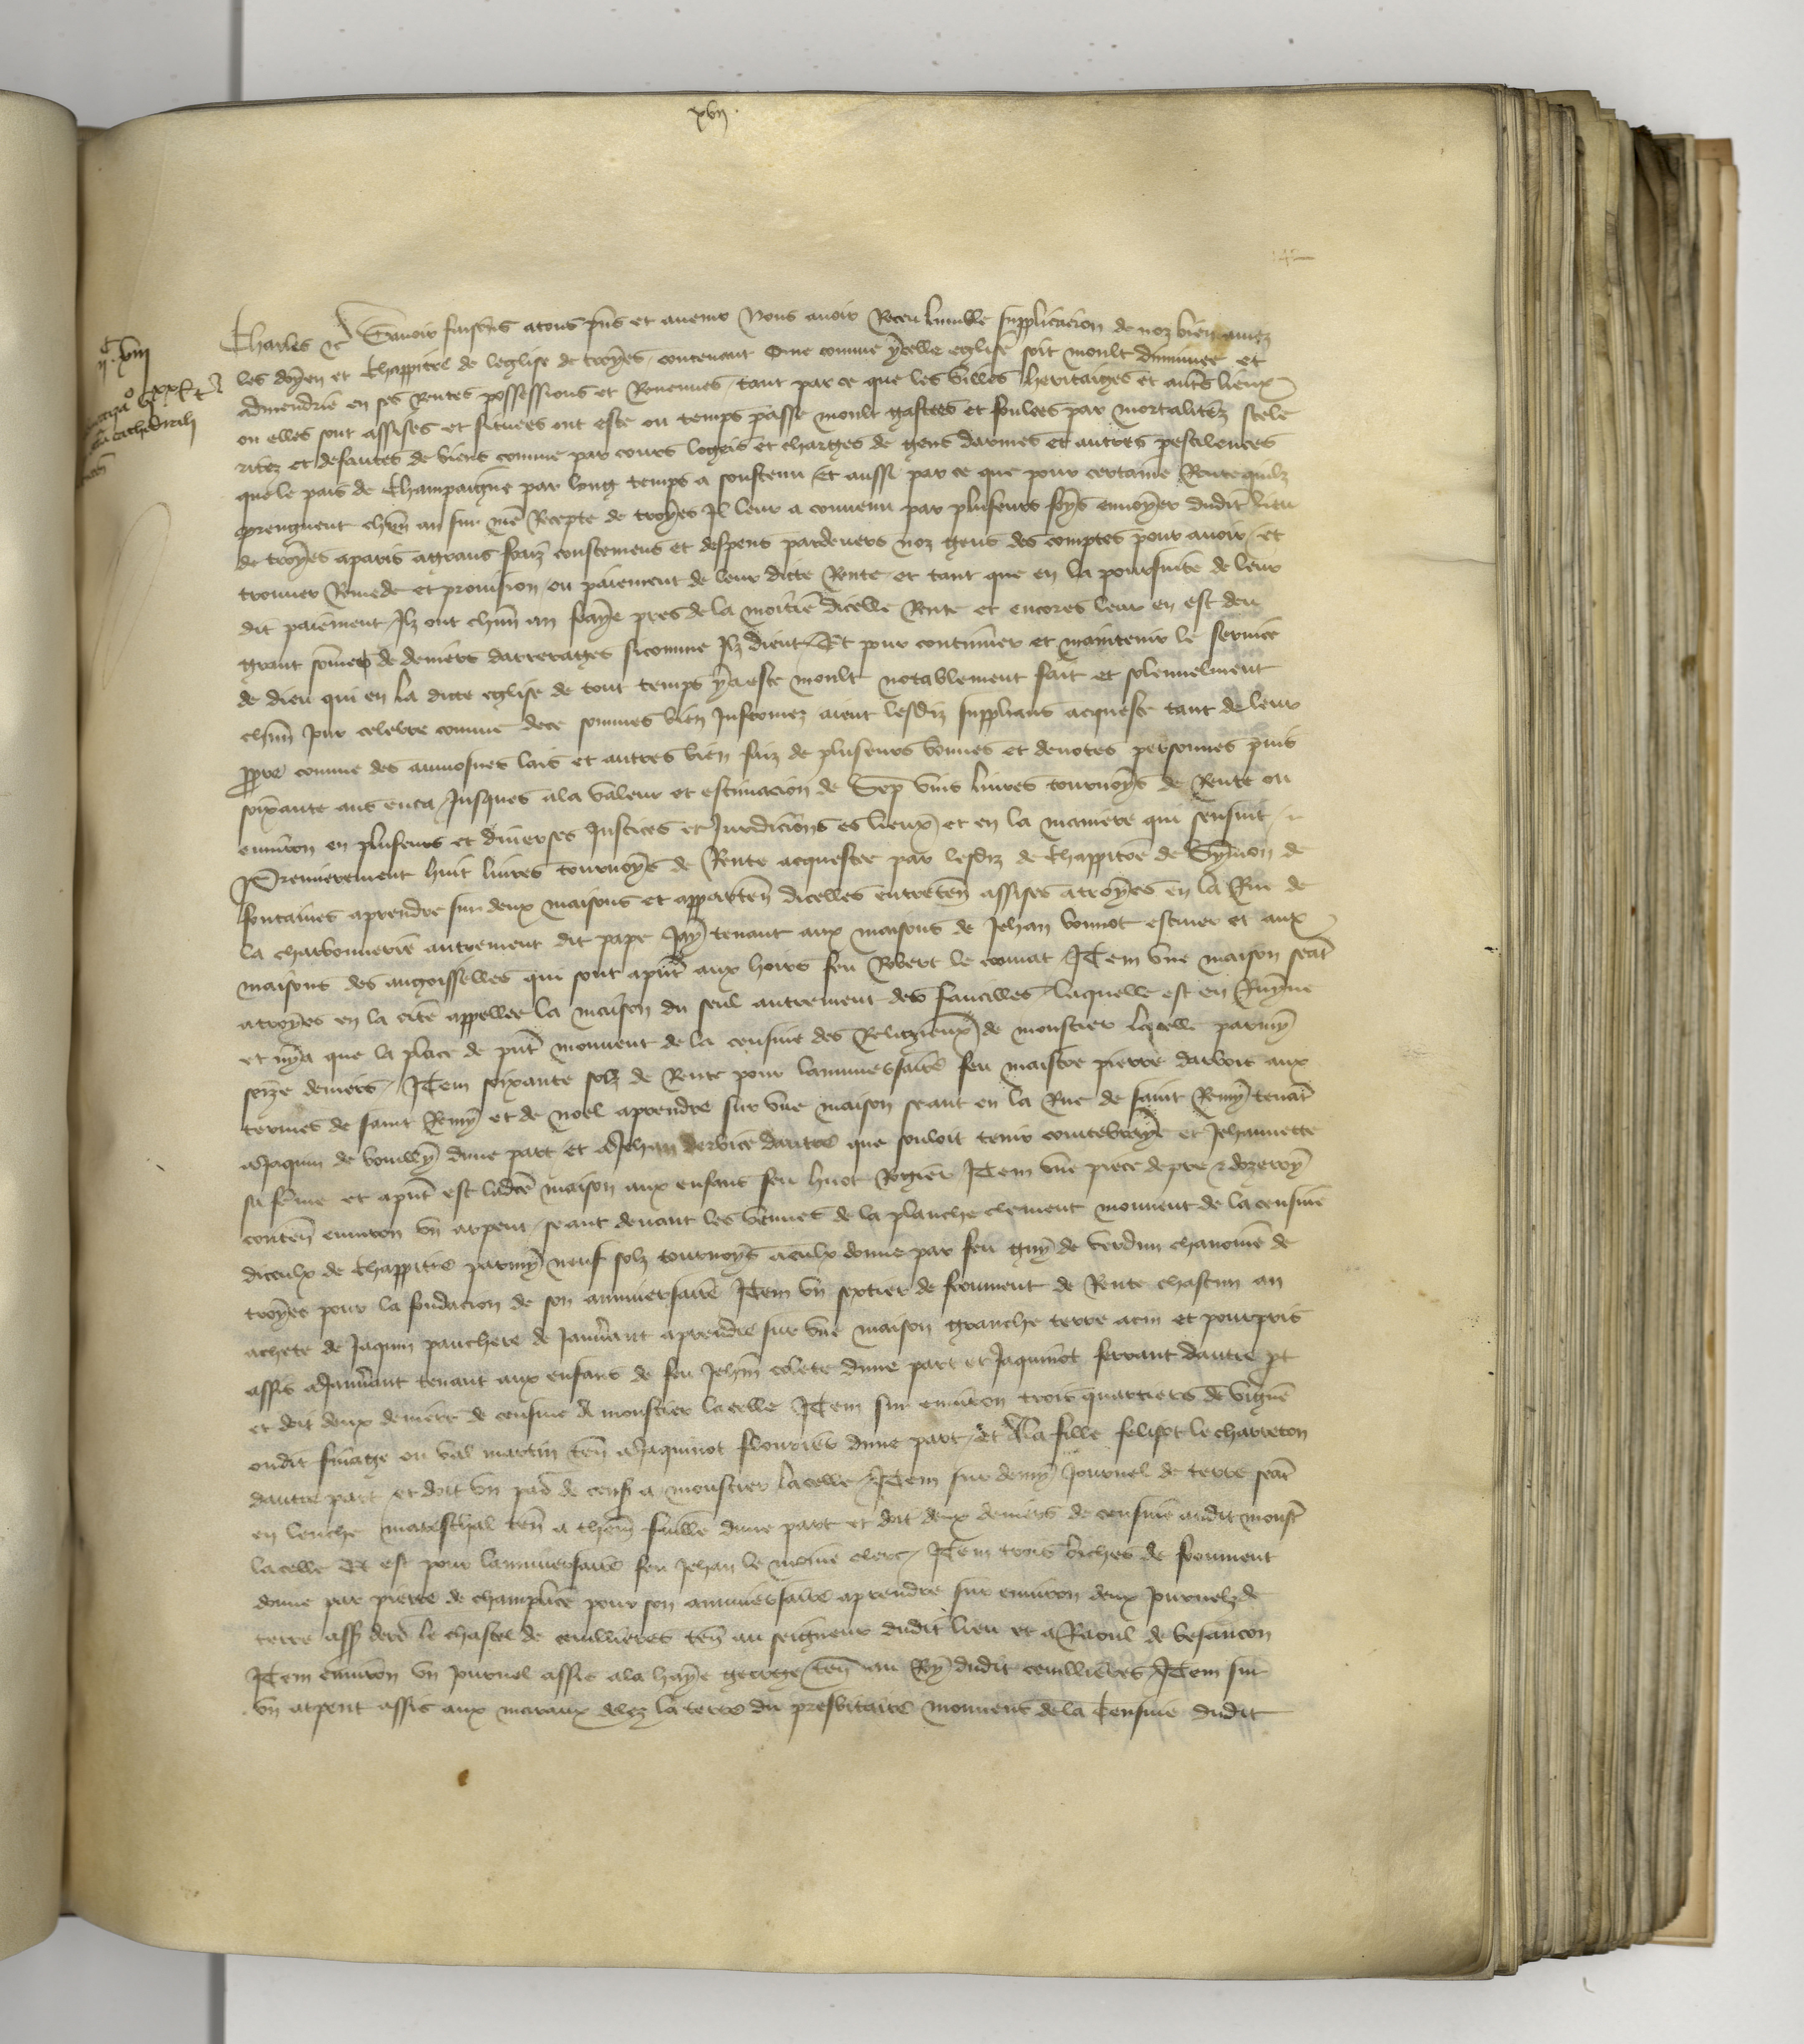 xvij.
ij c xiij
cathedralj
Charles etc Savoir faisons atous pns et avenir Nous avoir Receu lumble supplicacion de noz bien amez
les doyen et Chappitre de leglise de troyes, contenant Que comme ycelle eglise soit moult diminuee et
admendrie en ses Rentes possessions et Revenues, tant par ce que les villes heritaiges et autres lieux
ou elles sont assises et situees ont este ou temps passe moult gastees et foulees par mortalitez sterе
ritez et defautes de biens comme par cours logeis et charges de gens darmes et autres pestilences
que le pais de Champaigne par long temps a soustenu Et aussi par ce que pour certaine Rente quilz
prengnent chun an sur nre Recepte de troyes Il leur a convenu par pluseurs foys envoyer dudit lieu
de troyes aparis agrans fraiz coustemens et despens pardevers noz gens des comptes pour avoir et
trouver Remede et provision ou paiement de leur dicte Rente, et tant que en la poursuite de leur
dit paiement Ilz ont chun an fraye pres de la moitie dicelle Rente et encores leur en est deu
grant somme de deniers darrerages sicomme Ilz dient Et pour continuer et maintenir le service
de dieu qui en la dicte eglise de tout temps y a este moult notablement fait et solennelment
chun Jour celebre comme dece sommes bien Informez aient lesdiz supplians acqueste tant de leur
propre comme des aumosnes lais et autres bien faiz de pluseurs bonnes et devotes personnes puis
soixante ans enca, Jusques ala valeur et estimacion de Sep vins livres tournoys de Rente ou
environ en pluseurs et diverses Justices et Juridicions es lieux et en la maniere qui sensuit
Premierement huit livres tournoys de Rente acquestee par lesdiz de Chappitre de Symon de
fontaines aprendre sur deux maisons et apparten dicelles entreten assises atroyes en la Rue de
la charbonnerie autrement dit pape Jay tenant aux maisons de Jehan bonnot escuier et aux
maisons des angoisselles qui sont apnt aux hoirs feu Robert le Item une maison seat
atroyes en la cite appellee la maison du seul autrement des faucilles, laquelle est en Ruyne
et ny a que la place de pnt mouvent de la censive des Religieux de monstier lacelle parmy
seize deniers, Item soixante solz de Rente pour lanniversaire feu maistre pierre darbois aux
termes de saint Remy et de noel aprendre sur une maison seant en la Rue de saint Remy tenat
a Jaquin de dune part et a Jehan dervice dautre que souloit tenir et Jehannette
sa feme et apnt est ladce maison aux enfans feu huot Rogier Item une piece de pre
conten environ un arpent, seant devant les vennes de la planche clement mouvent de la censive
diceulx de Chappitre parmy neuf solz tournoys aceulx donne par feu guy de verdun chanoine de
troyes pour la fondacion de son anniversaire Item un sextier de froument de Rente chascun an
achete de Jaquin panchere de Janvrant aprendre sur une maison granche terre acin et pourpris
assis a Janvrant tenant aux enfans de feu Jehan colete dune part et Jaquinot ferrant dautre pt
et doit deux deniers de censive A monstier lacelle Item sur environ trois quartiers de vigne
oudit finage ou val martin ten a Jaquinot flouriet dune part, et A la fille felisot le charreton
dautre part et doit un pad de cens a monstier lacelle, Item sur demy Journel de terre seat
en lenche mareschal ten a dune part et doit deux deniers de censive audit monst
lacelle Et est pour lanniversaire feu Jehan le moine clerc, Item trois biches de froument
donne par pierre de champlite pour son anniversaire aprendre sur environ deux Journelz de
terre ass derr le chastel de cenillieres ten au seigneur dudit lieu et a Raoul de besancon
Item environ un Journel assis ala haye george ten au Ry dudit cenillieres Item sur
un arpent assis aux maraux delez la terre du presbitaire mouvent de la Censive dudit